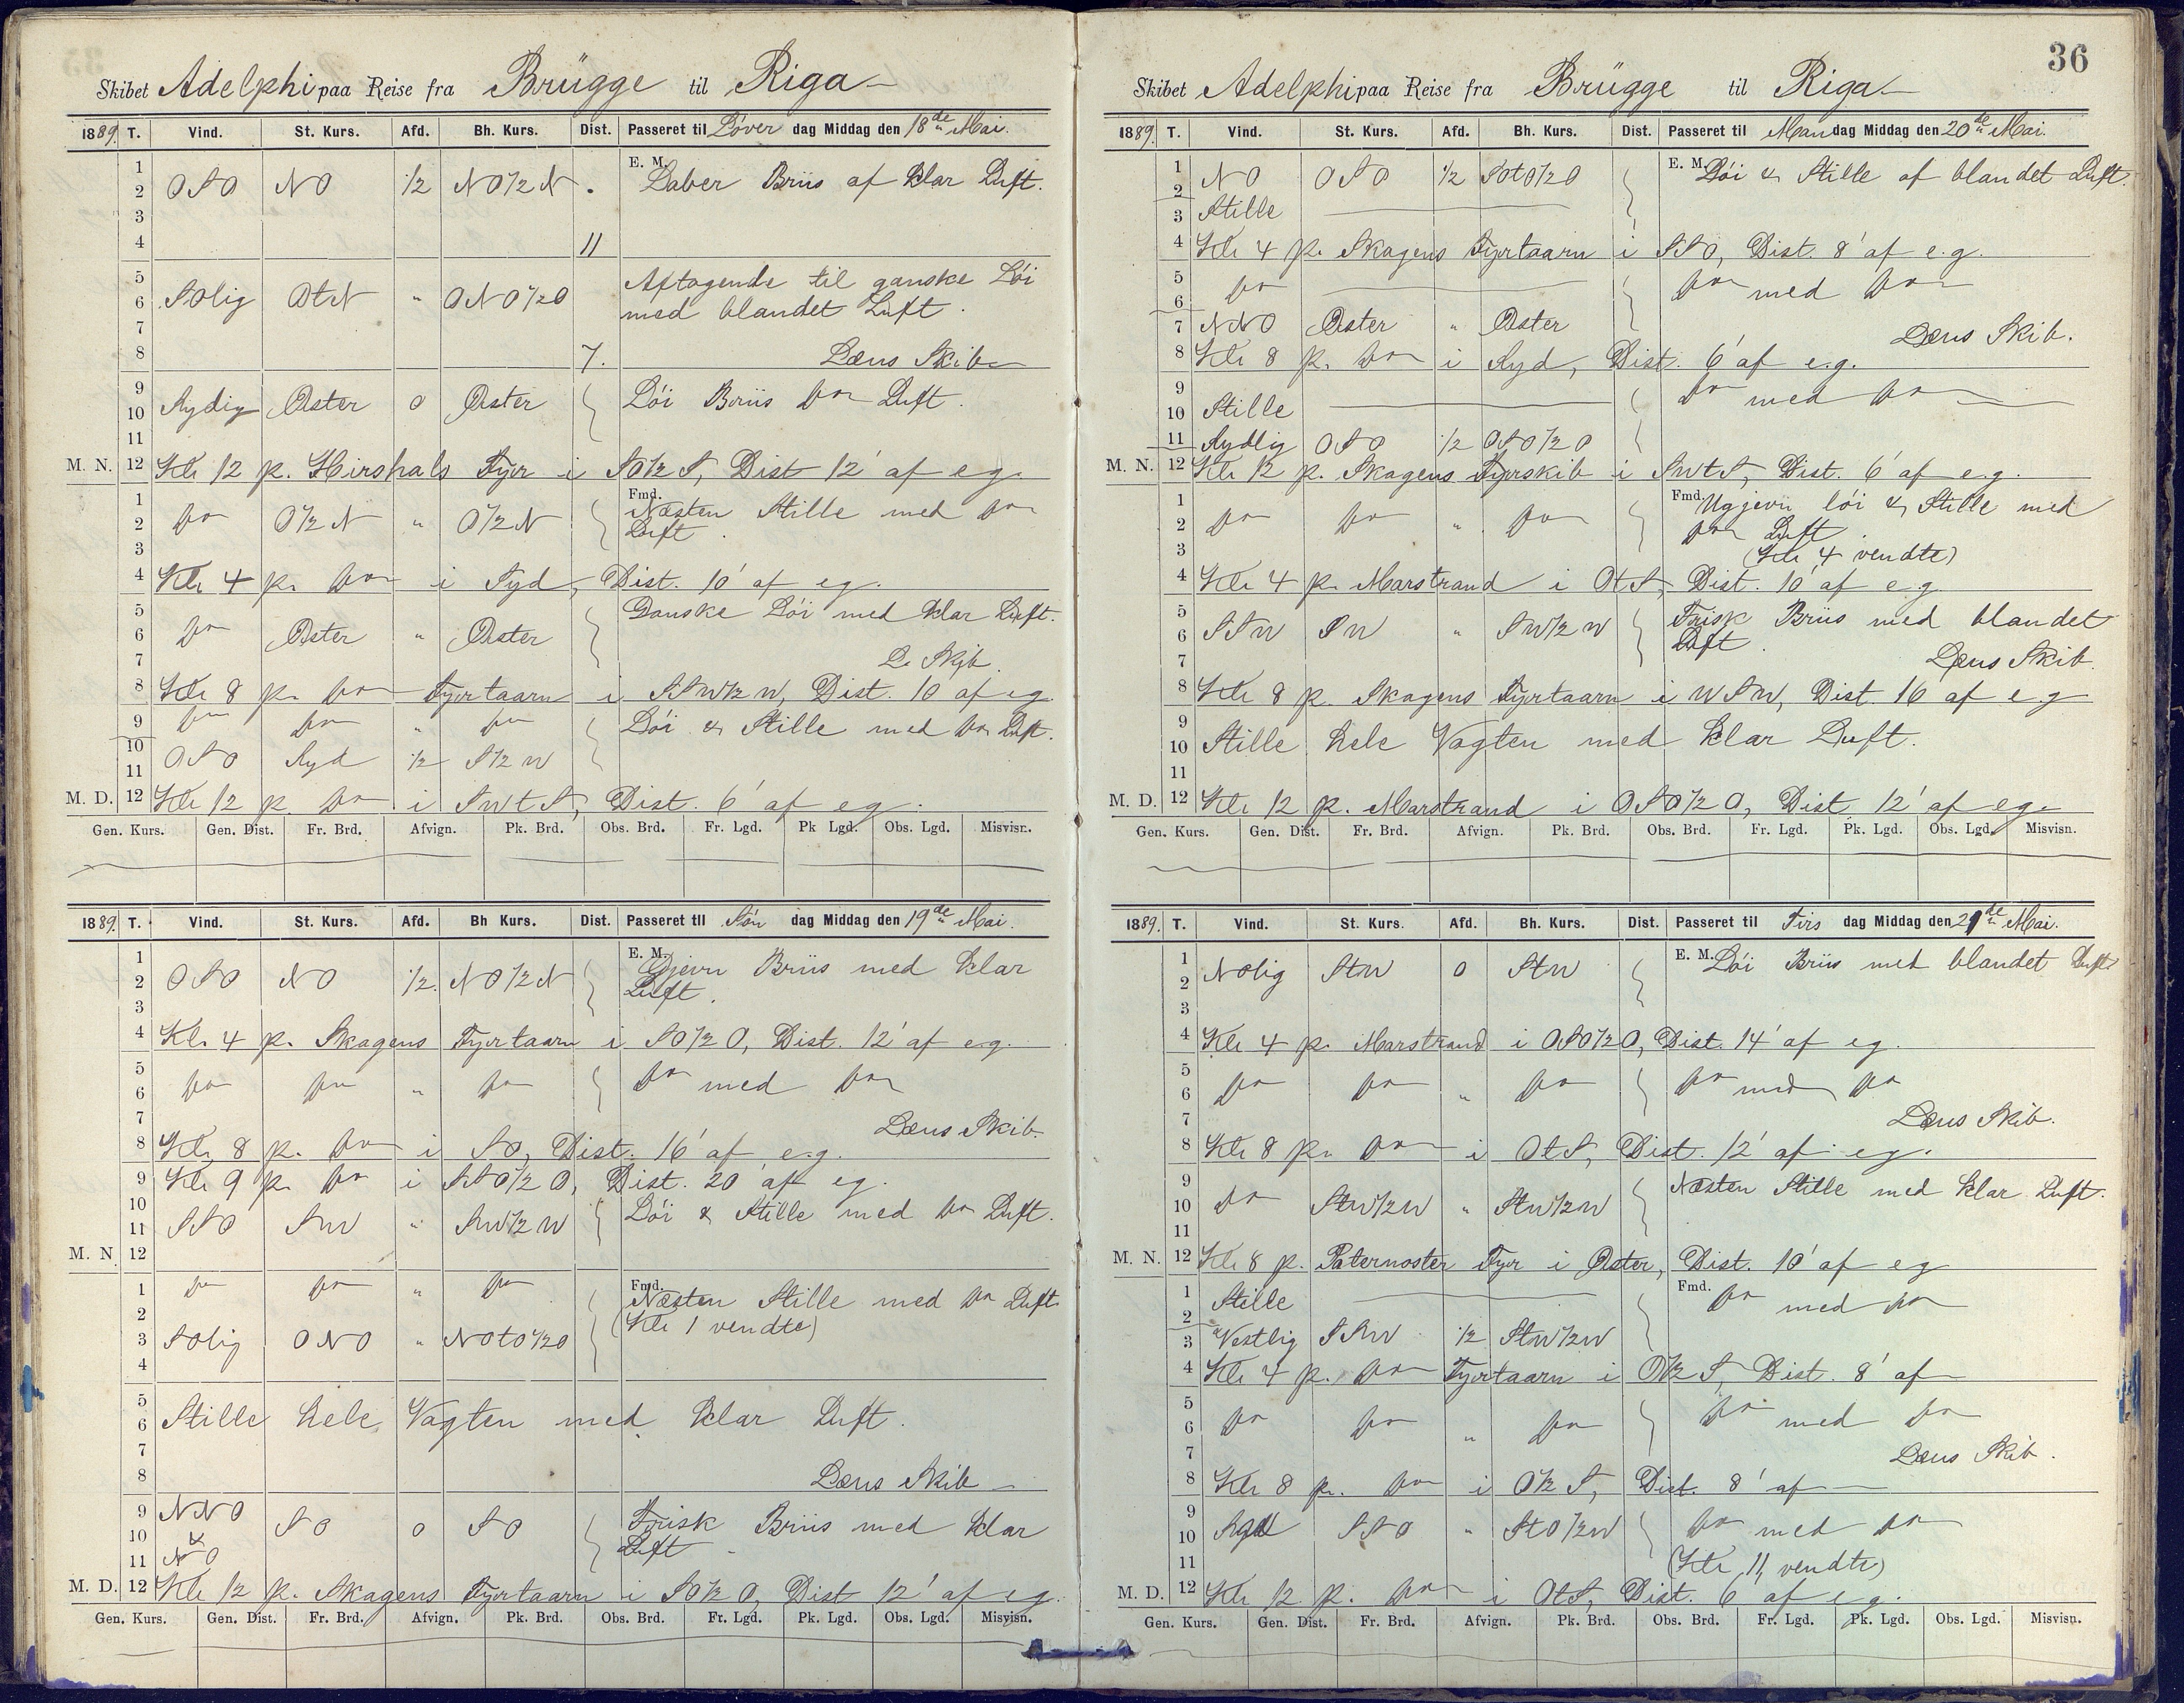 36
Skibet Adelphi paa Reise fra Brügge til Riga
1889. T. Vind. St. Kurs. Afd. Bh. Kurs. Dist. Passeret til Löver dag Middag den 18de Mai.
1 E. M.
2 OSO NO ½ NO½N Laber Briis af klar Luft.
3
4 11
5 Aftagende til ganske Löi
6 SOlig OtN " ONO½O med blandet Luft.
7
8 7. Læns Skib
9
10 Sydig Øster 0 Øster Löi Briis do Luft.
11
M. N. 12 Kl. 12 p. Hirshals Fyr i SO½S, Dist 12' af eg.
1 Fmd. Næsten Stille med do
2 do O½N " O½N Luft.
3
4 Kl. 4 p. do i Syd, Dist. 10' af eg.
5 Ganske Löi med klar Luft.
6 do Øster " Øster
7 L. Skib.
8 Kl. 8 p. do Fyrtaarn i SSW½W, Dist. 10 af eg.
9 do do " do Löi & Stille med do Luft.
10 OSO Syd ½ S½W
11
M. D. 12 Kl. 12 p. do i SWtS, Dist. 6' af eg.
Gen. Kurs. Gen. Dist. Fr. Brd. Afvign. Pk. Brd. Obs. Brd. Fr. Lgd. Pk Lgd. Obs. Lgd. Misvisn.
1889. T. Vind. St. Kurs. Afd. Bh Kurs. Dist. Passeret til Sön dag Middag den 19de Mai.
1 E. M. Gjevn Briis med klar
2 OSO NO ½. NO½N Luft.
3
4 Kl. 4 p. Skagens Fyrtaarn i SO½O, Dist. 12' af eg.
5
6 do do " do do med do
7 Læns Skib.
8 Kl. 8 p. do i SO, Dist. 16' af e.g.
9 Kl. 9 p. do i SSO½O, Dist. 20' af eg.
10
11 SSO SW " SW½W Löi & Stille med do Luft.
M. N. 12
1 do do " do Fmd. Næsten Stille med do Luft.
2 (Kl. 1 vendte)
3 SOlig ONO " NOtO½O
4
5
6 Stille hele Vagten med klar Luft.
7
8 Læns Skib
9 NNO Frisk Briis med klar
10 & SO 0 SO Luft
11 NO
M. D. 12 Kl. 12 p. Skagens Fyrtaarn i SO½O, Dist 12' af eg.
Gen. Kurs. Gen. Dist. Fr. Brd. Afvign. Pk. Brd. Obs. Brd. Fr. Lgd. Pk. Lgd. Obs. Lgd. Misvisn.
Skibet Adelphi paa Reise fra Brügge til Riga
1889. T. Vind. St. Kurs. Afd. Bh. Kurs. Dist. Passeret til Mandag Middag den 20de Mai.
1 NO OSO ½ SOtO½O E. M. Löi & Stille af blandet Luft.
2
3 Stille
4 Kl. 4 p. Skagens Fyrtaarn i SSO, Dist. 8' af e.g.
5 do do med do
6
7 NNO Øster " Øster Læns Skib.
8 Kl. 8 p. do i Syd, Dist. 6' af e.g.
9 do med do
10 Stille
11 Sydlig OSO ½ OSO½O
M. N. 12 Kl. 12 p. Skagens Fyrskib i SWtS, Dist. 6' af e.g.
1 Fmd. Ugjevn löi & Stille med
2 do do " do do Luft.
3 (Kl. 4 vendte)
4 Kl. 4 p. Marstrand i OtS, Dist. 10' af eg
5 Frisk Briis med blandet
6 SSW SW " SW½W Luft.
7 Læns Skib.
8 Kl. 8 p. Skagens Fyrtaarn i WSW, Dist. 16 af e.g
9
10 Stille hele Vagten med klar Luft.
11
M. D. 12 Kl. 12 p. Marstrand i OSO½O, Dist. 12' af eg.
Gen. Kurs. Gen. Dist. Fr. Brd. Afvign. Pk. Brd. Obs. Brd. Fr. Lgd. Pk. Lgd. Obs. Lgd. Misvisn.
1889. T. Vind. St. Kurs. Afd. Bh. Kurs. Dist. Passeret til Tirs dag Middag den 21de Mai.
1 E. M. Löi Briis med blandet Luft
2 NOlig StW 0 StW
3
4 Kl. 4 p. Marstrand i OSO½O, Dist. 14' af eg.
5
6 do do " do do med do
7 Læns Skib.
8 Kl. 8 p. do i OtS, Dist. 12' af eg.
9 Næsten Stille med klar Luft.
10 do StW½W " StW½W
11
M. N. 12 Kl. 8 p. Paternoster Fyr i Øster, Dist. 10' af eg
1 Stille Fmd. do med do
2
3 Vestlig SSW ½ StW½W
4 Kl. 4 p. do Fyrtaarn i O½S, Dist. 8' af
5
6 do do " do do med do
7 Læns Skib.
8 Kl. 8 p. do i O½S, Dist. 8' af
9
10 Syd SSO " StO½W do med do
11 (Kl. 11, vendte)
M. D. 12 Kl. 12 p. do i OtS, Dist. 6' af eg.
Gen. Kurs. Gen. Dist. Fr. Brd. Afvign. Pk. Brd. Obs. Brd. Fr. Lgd. Pk. Lgd. Obs. Lgd. Misvisn.